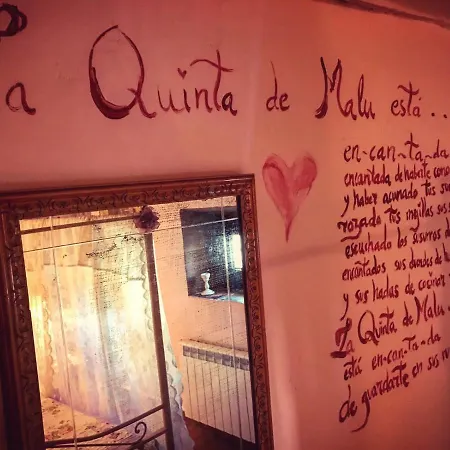 a Quinta de Malu está ...
en-can-ta-da
encantada de haberte cono
y haber acunado tus su
rozado tus mejillas sus s
escuchado los susurros d
encantados sus duendes de
y sus hadas de cocinar
La Quinta de Malu
está en-can-ta-da
de guardarte en sus